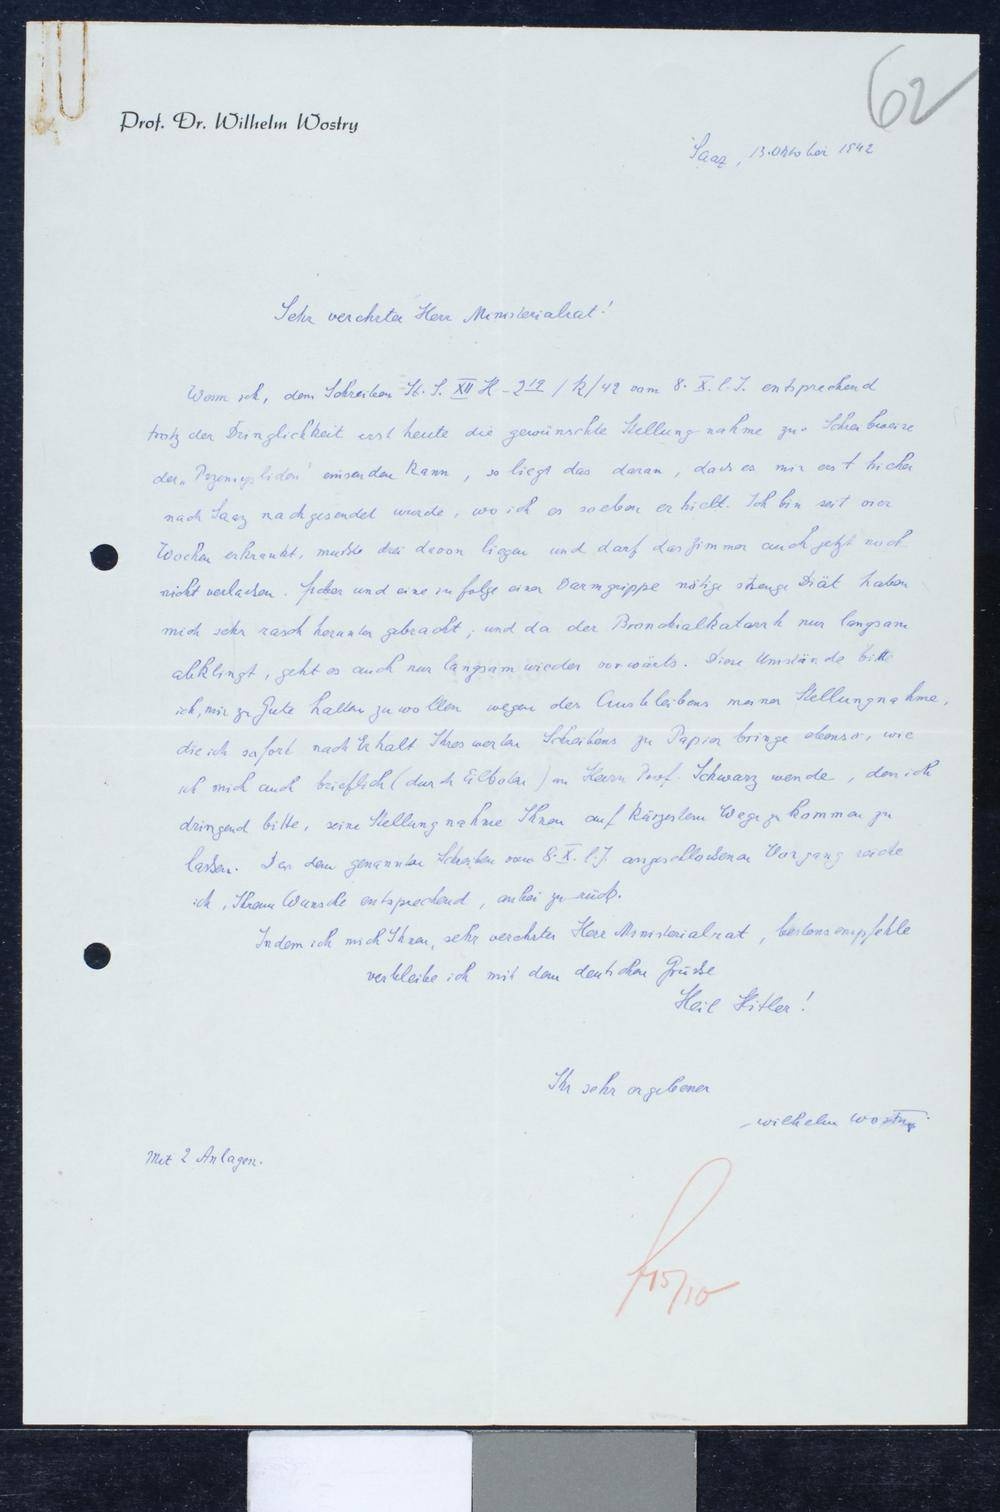 62
Prof. Dr. Wilhelm Wostry
Saaz, 13. Oktober 1942
Sehr verehrter Herr Ministerialrat!
Wenn ich, dem Schreiben St. S. XII H - 219 / k/42 vom 8. X. l. J. entsprechend
trotz der Dringlichkeit erst heute die gewünschte Stellungnahme zur Schreibweise
der „Przemysliden" einsenden kann, so liegt das daran, dass es mir erst hieher
nach Saaz nachgesendet wurde, wo ich es soeben erhielt. Ich bin seit vier
Wochen erkrankt, musste drei davon liegen und darf das Zimmer auch jetzt noch
nicht verlassen. Fieber und eine infolge einer Darmgrippe nötige strenge Diät haben
mich sehr rasch herunter gebracht, und da der Bronchialkatarrh nur langsam
abklingt, geht es auch nur langsam wieder vorwärts. Diese Umstände bitte
ich, mir zu Gute halten zu wollen wegen des Ausbleibens meiner Stellungnahme,
die ich sofort nach Erhalt Ihres werten Schreibens zu Papier bringe ebenso, wie
ich mich auch brieflich (durch Eilboten) an Herrn Prof. Schwarz wende, den ich
dringend bitte, seine Stellungnahme Ihnen auf kürzestem Wege zukommen zu
lassen. Den dem genannten Schreiben vom 8. X. l. J. angeschlossenen Vorgang reiche
ich, Ihrem Wunsche entsprechend, anbei zurück.
Indem ich mich Ihnen, sehr verehrter Herr Ministerialrat, bestens empfehle
verbleibe ich mit dem deutschen Grusse
Heil Hitler!
Ihr sehr ergebener
Wilhelm Wostry
Mit 2 Anlagen.
15/10